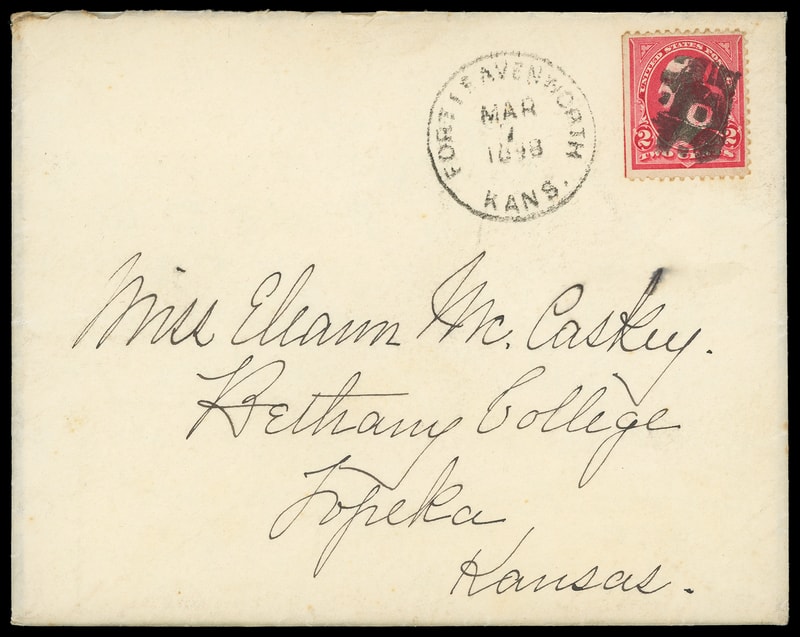 FORT LEAVENWORTH
MAR
7
1898
KANS.
UNITED STATES POST
2 2
TWO
Miss Eleann Mc. Caskey.
Bethany College
Topeka
Kansas.